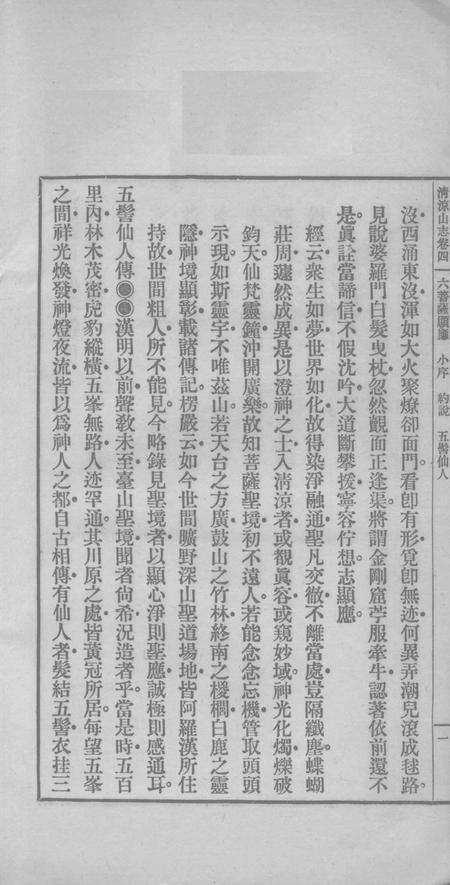 清涼山志卷四 六菩薩顯應 小序 約說 五髻仙人 一
沒西涌東沒渾如大火聚燎卻面門看卽有形覓卽無迹何異弄潮兒滾成毬路
見說婆羅門白髮曳杖忽然覿面正逢渠將謂金剛窟苧服牽牛認著依前還不
是眞詮當諦信不假沈吟大道斷攀援寧容佇想志顯應
經云衆生如夢世界如化故得染淨融通聖凡交徹不離當處豈隔纖塵蝶蝴
莊周蘧然成異是以澄神之士入淸涼者或覩眞容或窺妙域神光化燭爍破
鈞天仙梵靈鐘沖開廣樂故知菩薩聖境初不遠人若能念念忘機管取頭頭
示現如斯靈宇不唯茲山若天台之方廣鼓山之竹林終南之椶櫚白鹿之靈
隱神境顯彰載諸傳記楞嚴云如今世間曠野深山聖道場地皆阿羅漢所住
持故世間粗人所不能見今略錄見聖境者以顯心淨則聖應誠極則感通耳
五髻仙人傳●●漢明以前聲敎未至臺山聖境聞者尙希況造者乎當是時五百
里內林木茂密虎豹縱橫五峯無路人迹罕通其川原之處皆黃冠所居每望五峯
之間祥光煥發神燈夜流皆以爲神人之都自古相傳有仙人者髮結五髻衣挂三